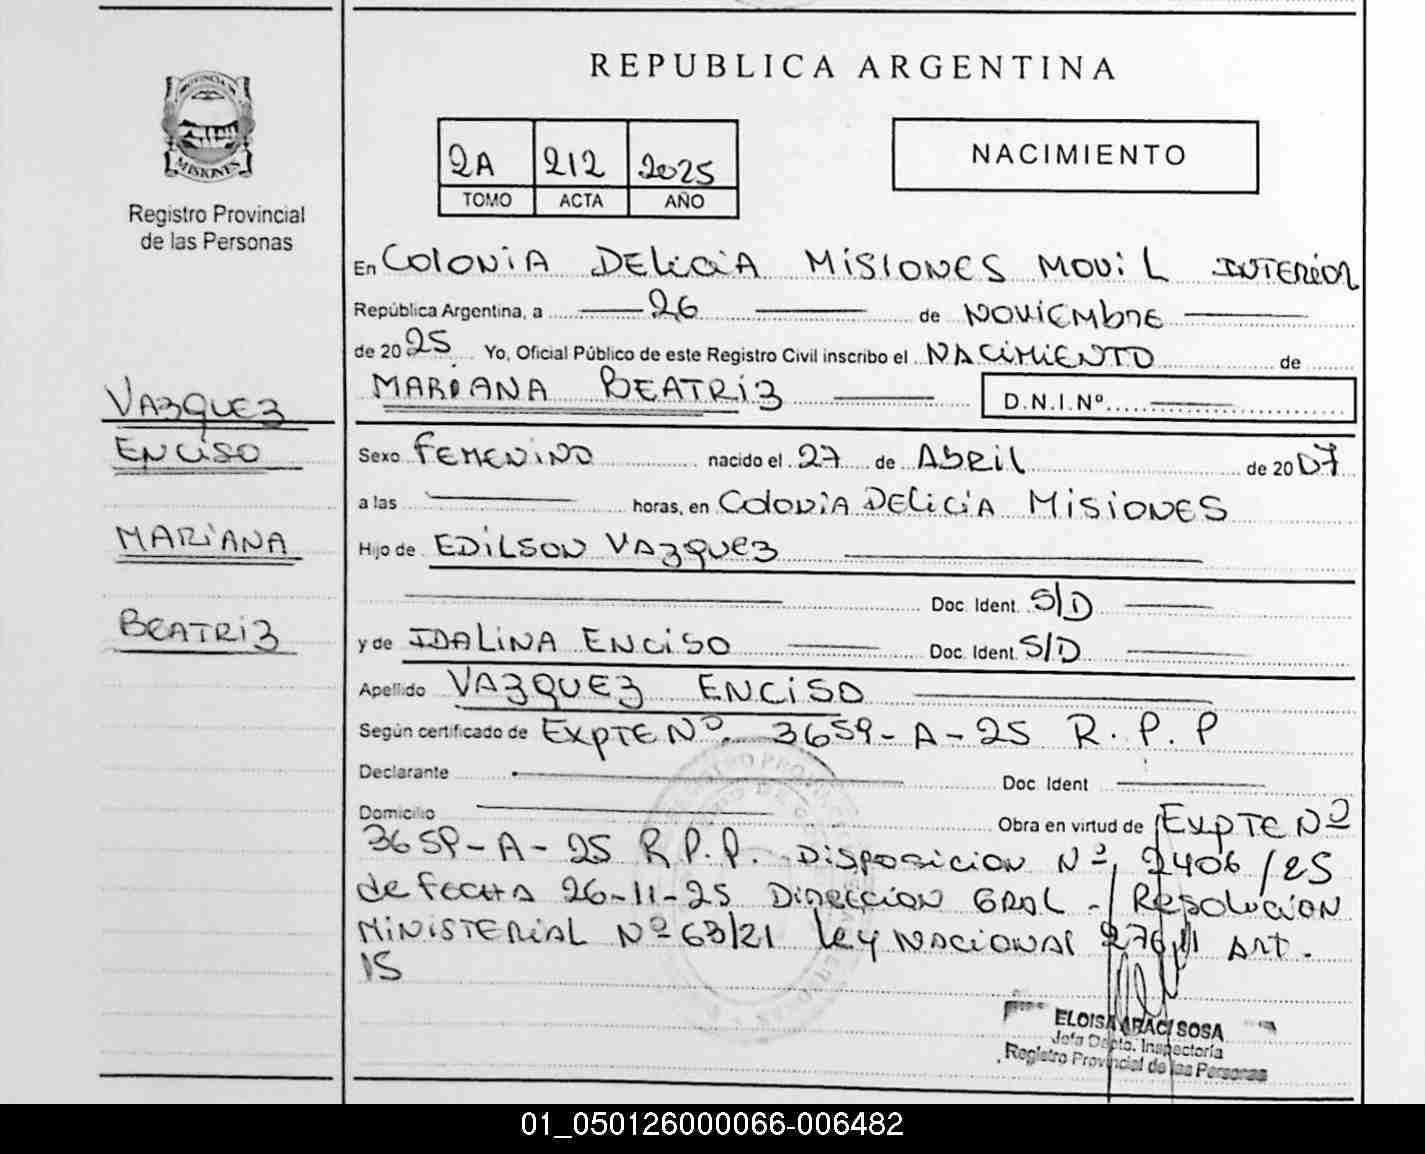 REPUBLICA ARGENTINA
PROVINCIA DE
MISIONES
Registro Provincial
de las Personas
2A 212 2025
TOMO ACTA AÑO
NACIMIENTO
En COLONIA DELICIA MISIONES MOVIL INTERIOR
República Argentina, a 26 de NOVIEMBRE
de 2025 Yo, Oficial Público de este Registro Civil inscribo el NACIMIENTO de
MARIANA BEATRIZ D.N.I.Nº
VAZQUEZ
ENCISO
MARIANA
BEATRIZ
Sexo FEMENINO nacido el 27 de ABRIL de 2007
a las horas, en COLONIA DELICIA MISIONES
Hijo de EDILSON VAZQUEZ
Doc. Ident. S/D
y de IDALINA ENCISO Doc. Ident. S/D
Apellido VAZQUEZ ENCISO
Según certificado de EXPTE Nº 3659-A-25 R.P.P
Declarante Doc. Ident
Domicilio Obra en virtud de EXPTE Nº
3659-A-25 R.P.P. DISPOSICION Nº 2406/25
de FECHA 26-11-25 DIRECCION GRAL - RESOLUCION
MINISTERIAL Nº 63/21 LEY NACIONAL ART.
15
ELOISA ARACI SOSA
Jefa Dpto. Inspectoría
Registro Provincial de las Personas
01_050126000066-006482